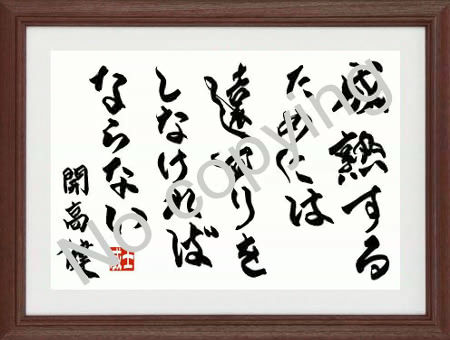 成熟する
ためには
遠回りを
しなければ
ならない
開高健
No copying